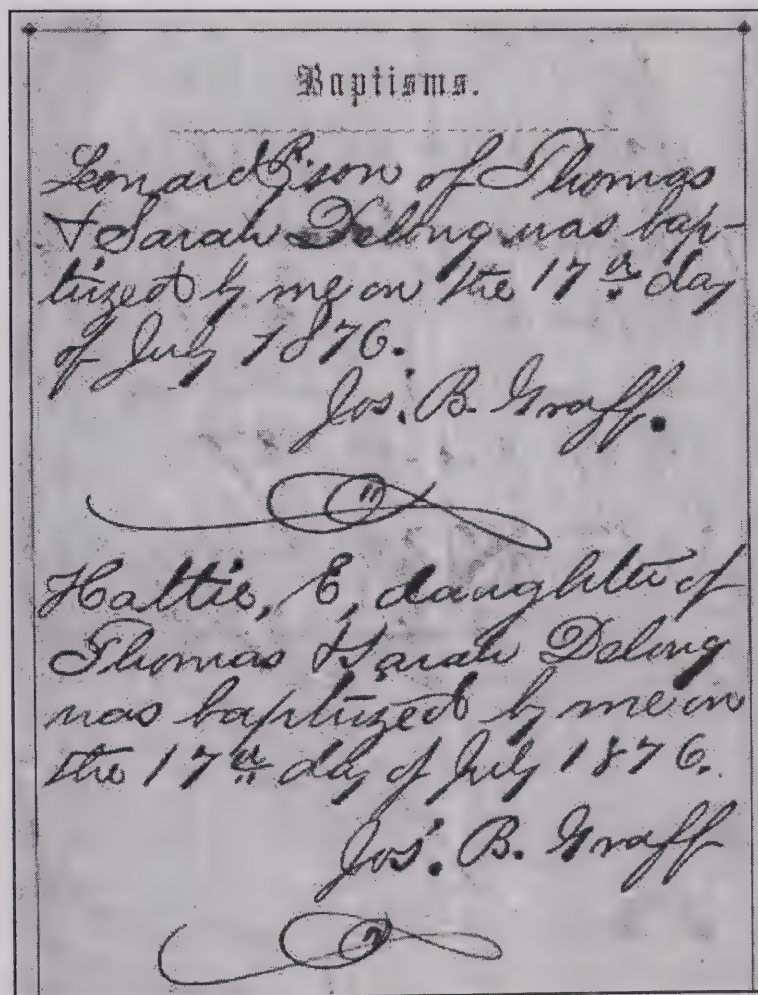 Baptisms.
Leonard R. son of Thomas
& Sarah Delong was bap-
tized by me on the 17th day
of July 1876.
Jos. B. Graff.
Hattie, E, daughter of
Thomas & Sarah Delong
was baptized by me on
the 17th day of July 1876.
Jos. B. Graff